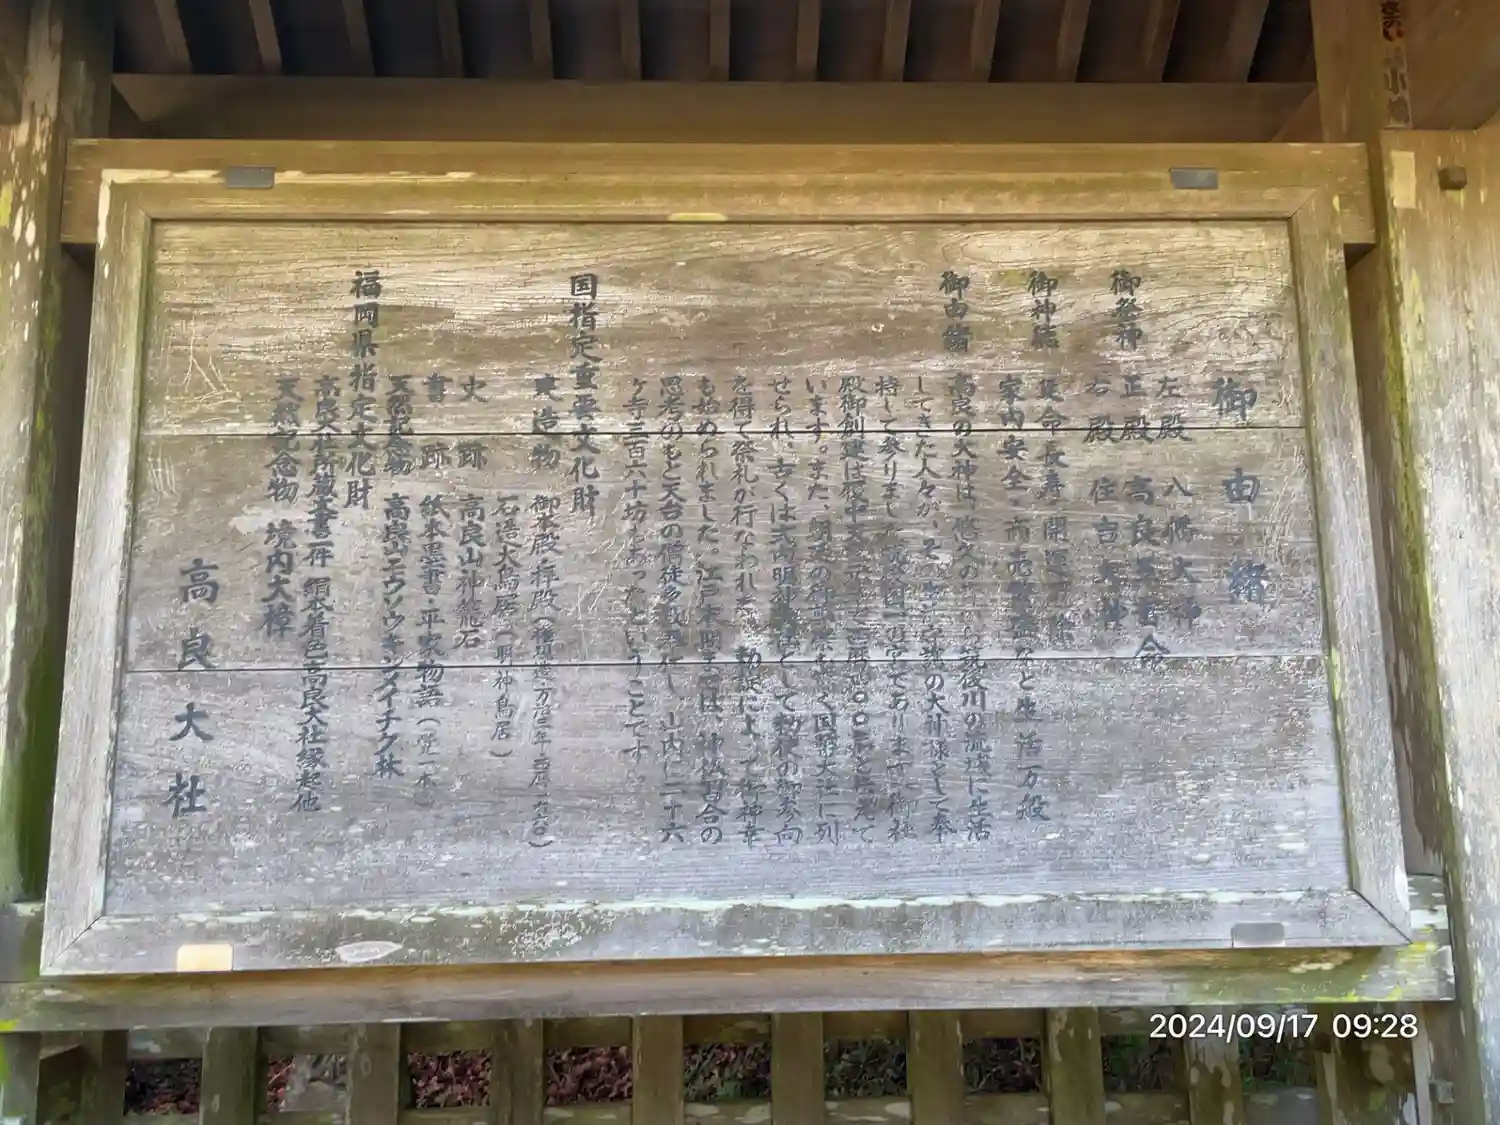 御由緒
御祭神
左殿 八幡大神
正殿 高良玉垂命
右殿 住吉大神
御神能
延命長寿・開運
家内安全・商売繁盛など生活万般
御由緒
高良の大神は、悠久の 筑後川の流域に生活
してきた人々が、 の大神様として奉
持して参りました筑後国一の宮であります。御社
殿御創建は履中天皇元年 西暦四〇〇年と伝えて
います。また、朝廷の御崇敬も 国幣大社に列
せられ、古くは式内名神大社として 勅使の御参向
を得て祭礼が行なわれ 勅裁によって御神幸
も始められました。江戸末期までは、神仏習合の
思考のもと天台の僧徒多数奉仕し、山内に二十六
ヶ寺三百六十坊もあったということです。
国指定重要文化財
建造物 御本殿・拝殿（権現造・万治三年・西暦一六六〇）
石造大鳥居（明神鳥居）
史跡 高良山神籠石
書跡 紙本墨書・平家物語（覚一本）
天然記念物 高良山モウソウキンメイチク林
福岡県指定文化財
高良大社所蔵文書一件 絹本着色高良大社縁起他
天然記念物 境内大樟
高良大社
2024/09/17 09:28